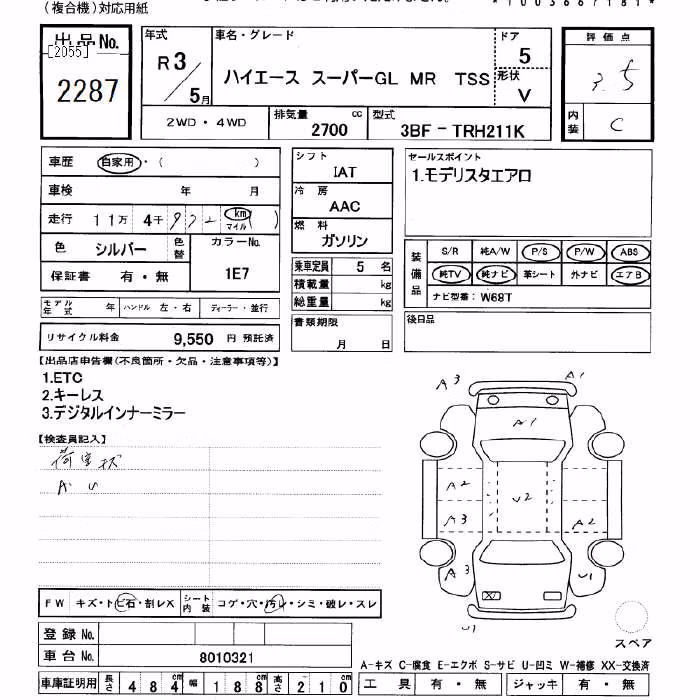 (複合機)対応用紙
出品No.
[2055]
2287
年式
R3/5月
車名・グレード
ハイエース スーパーGL MR TSS
ドア
5
形状
V
2WD・4WD
排気量 cc
2700
型式
3BF-TRH211K
評価点
3.5
内装
C
車歴 自家用・( )
車検 年 月
走行 11万 4千 932 (km マイル)
色 シルバー 色替
カラーNo.
1E7
保証書 有・無
モデル年式 年 ハンドル 左・右 ディーラー・並行
リサイクル料金 9,550 円 預託済
シフト
IAT
冷房
AAC
燃料
ガソリン
乗車定員 5 名
積載量 kg
総重量 kg
書類期限
月 日
セールスポイント
1.モデリスタエアロ
装備品
S/R 純A/W P/S P/W ABS
純TV 純ナビ 革シート 外ナビ エアB
ナビ型番: W68T
後日品
【出品店申告欄(不良箇所・欠品・注意事項等)】
1.ETC
2.キーレス
3.デジタルインナーミラー
【検査員記入】
荷室キズ
A U
A3
A1
A1
A2
U2
A3
A2
A3
U1
U1
スペア
FW キズ・トビ石・割レX シート内装 コゲ・穴・汚レ・シミ・破レ・スレ
登録No.
車台No. 8010321
車庫証明用 長さ 484 cm 幅 188 cm 高さ 210 cm
A-キズ C-腐食 E-エクボ S-サビ U-凹ミ W-補修 XX-交換済
工具 有・無 ジャッキ 有・無